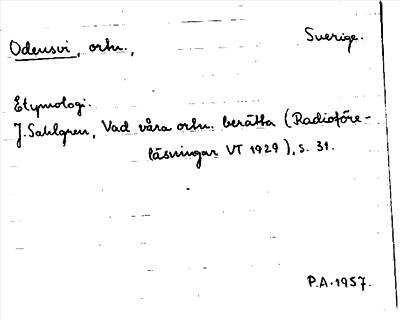 Odensvi, ortn.,
Sverige.
Etymologi.
J. Sahlgren, Vad våra ortn. berätta (Radioföre-
läsningar VT 1929), s. 31.
P.A. 1957.